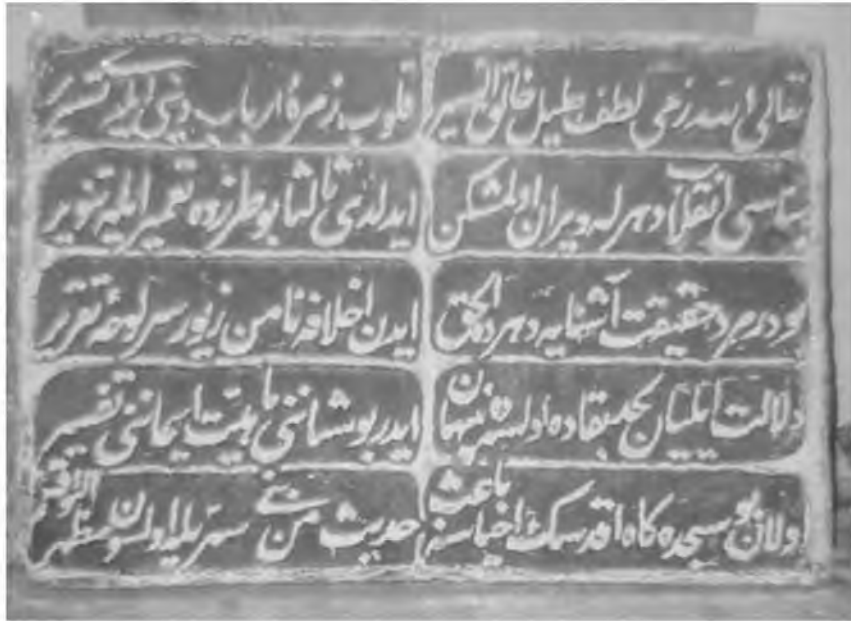 تعالی الله زهی لطف جلیل خالق التیسیر قلوب زمرهٔ ارباب دینی
بناسی انقلاب دهر له ویران اولمشکن ایدلدی ثالثا بو طرزده تعمیر ایله تنویر
بودر مرد حقیقت آشنایه دهرده الحق ایدن اخلافه نامن زیور سر لوحهٔ تقریر
دلالت ایلیان بقاده اولسه ده پنهان ایدر بو شاننی ماهیت ایماننی تفسیر
اولان بو سجده كاه اقدسك احیاسنه باعث حدیث من بنی سریله اولسون مظهر التوقیر